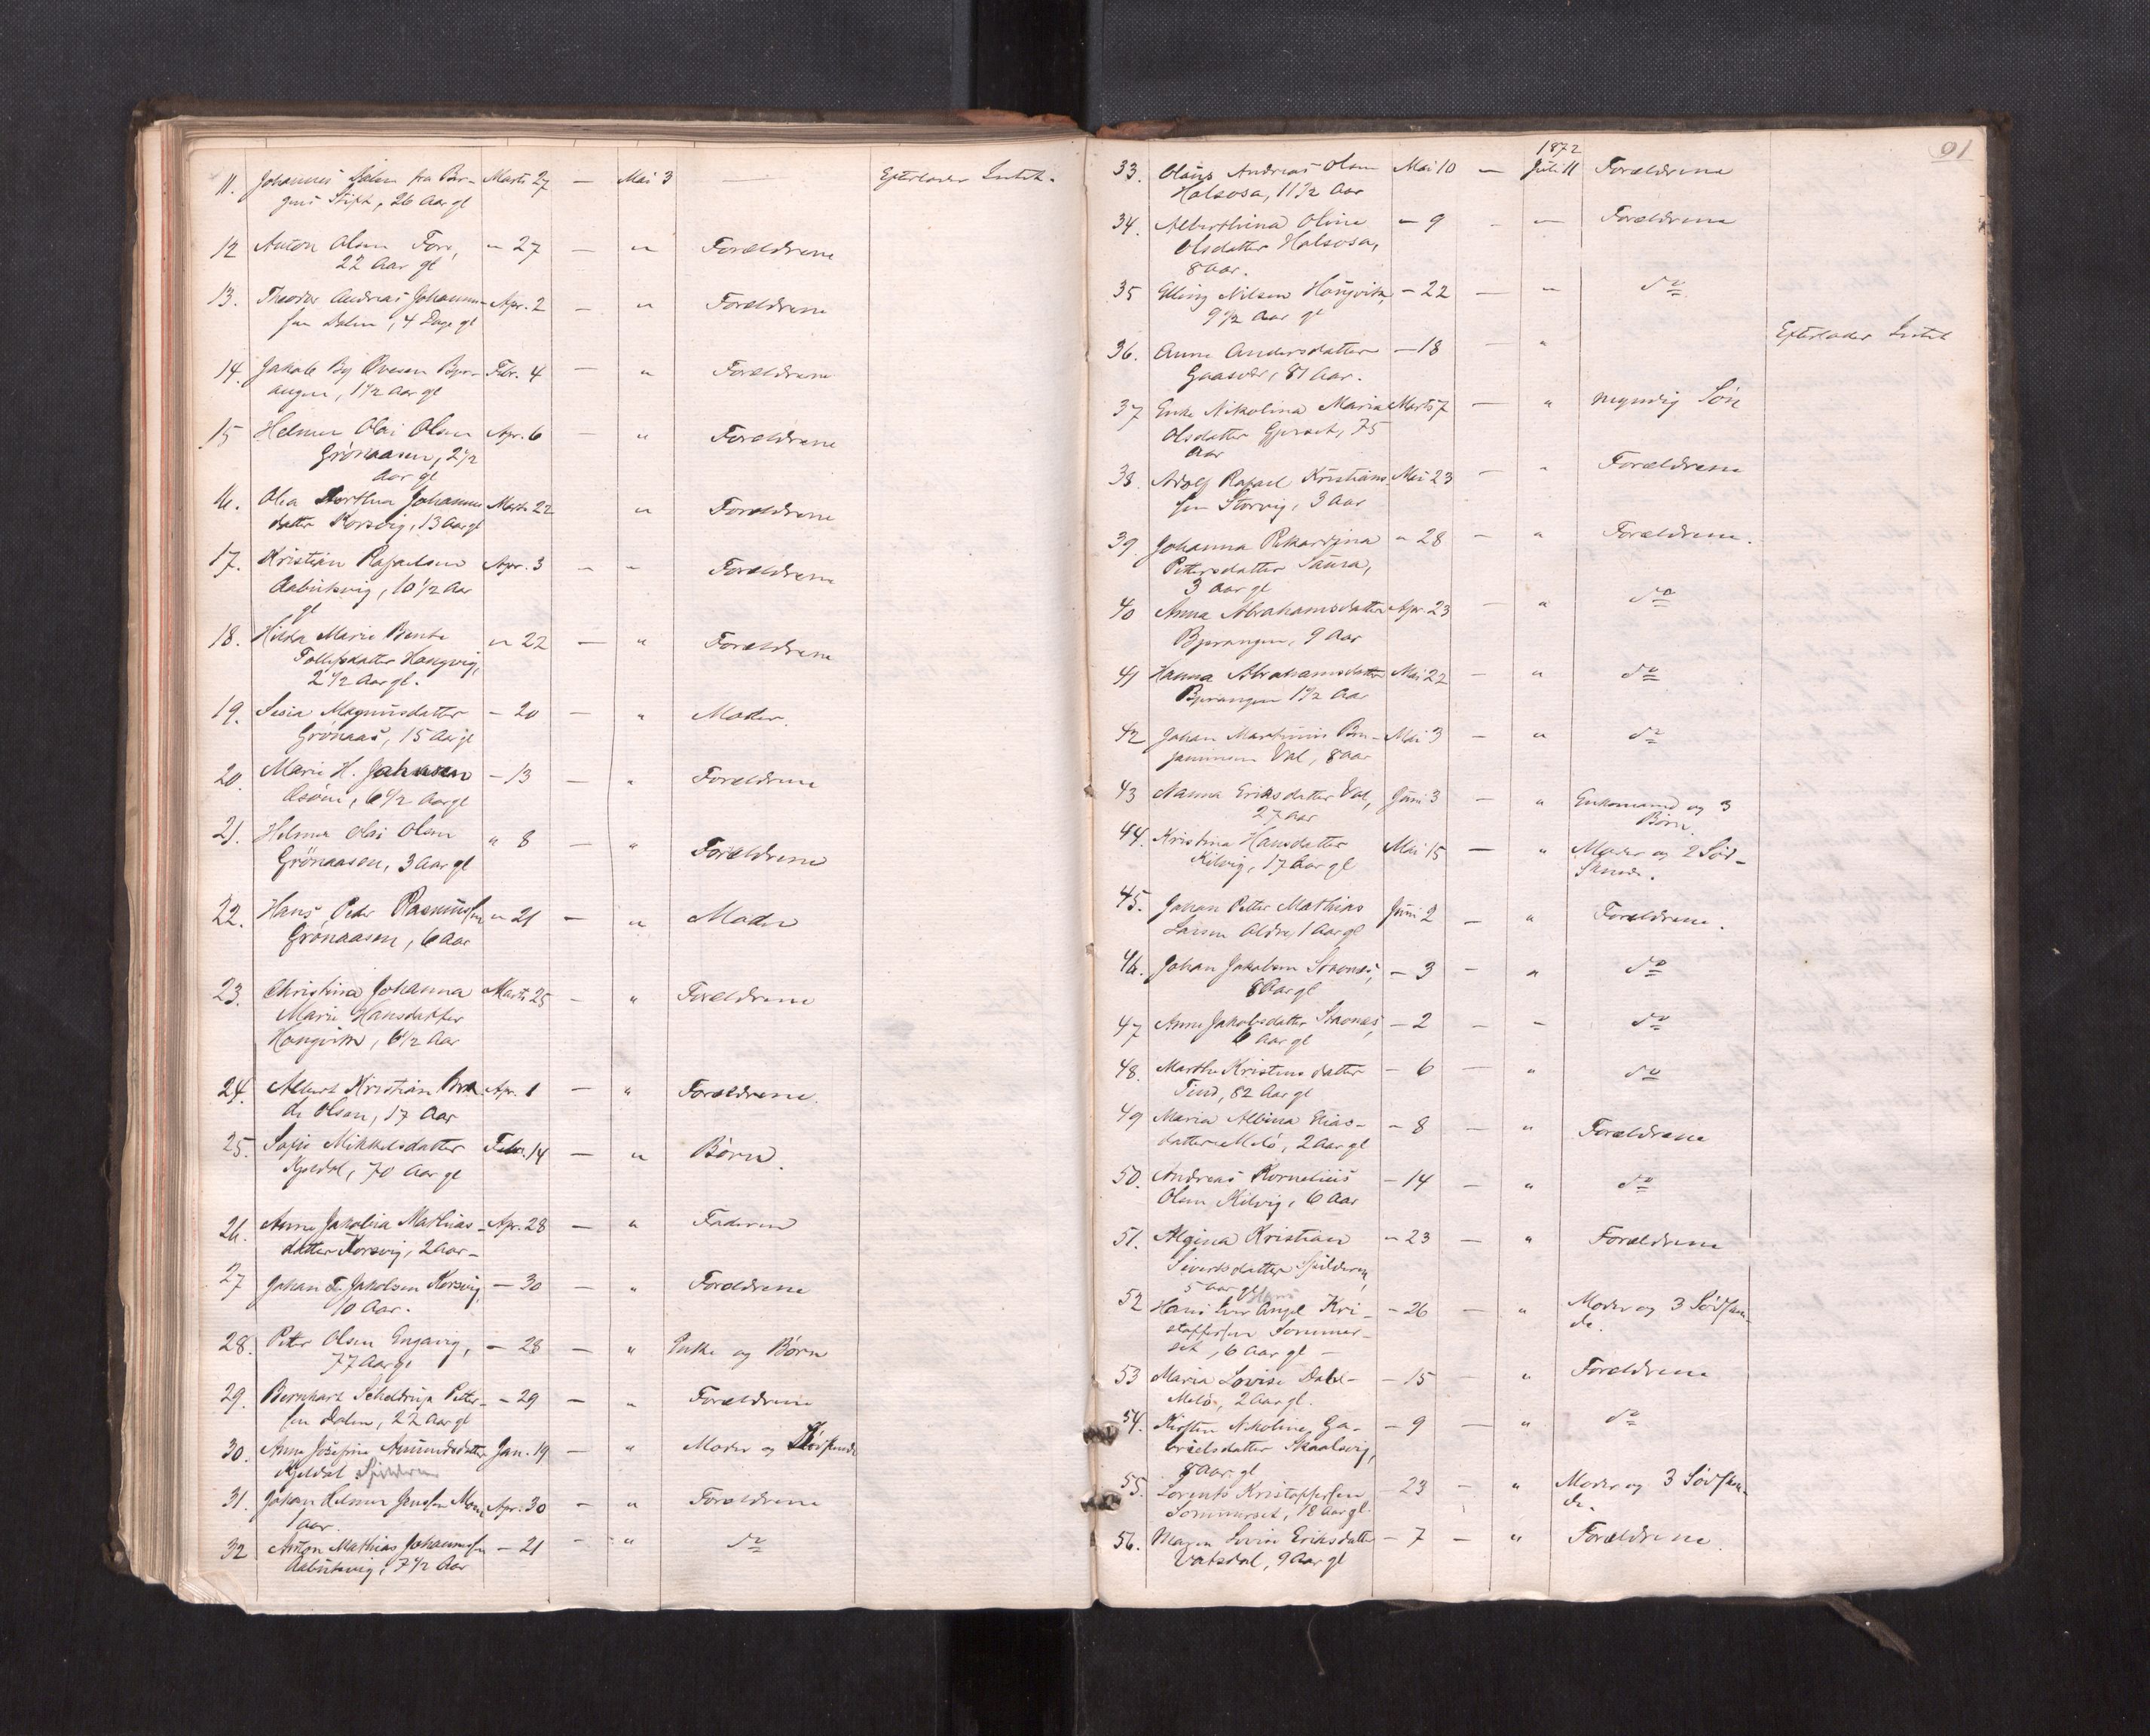 11. Johannes fra Ber- Marts 27 — Mai 3 — Efterlader Intet.
gens Stift, 26 Aar gl
12 Anton Olsen Fore, " 27 — " Forældrene
22 Aar gl
13. Theodor Andreas Johannes- Apr. 2 — " Forældrene
sen Dalen, 4 Dage gl
14. Jakob By Ovesen Bjær- Febr. 4 — " Forældrene
angen, 1 1/2 Aar gl
15 Helmer Olai Olsen Apr. 6 — " Forældrene
Grønaasen, 2 1/2
Aar gl
16. Olea Dorthea Johannes Marts 22 " Forældrene
datter Korsvig, 13 Aar gl
17. Kristian Rafaelsen Apr. 3 — " Forældrene
Aabutsvig, 10 1/2 Aar
gl
18. Hilda Marie Bente " 22 — " Forældrene
Tollefsdatter Haugvig,
2 1/2 Aar gl.
19. Magnusdatter — 20 — " Moder.
Grønaas, 15 Aar gl
20. Marie H. Johansen — 13 — " Forældrene
6 1/2 Aar gl
21. Helmer Olai Olsen " 8 — " Forældrene
Grønaasen, 3 Aar gl
22. Hans Peder Rasmussen " 21 — " Moder
Grønaasen, 6 Aar
23. Christina Johanna Marts 25 — " Forældrene
Marie Hansdatter
Haugvik, 6 1/2 Aar
24. Albert Kristian Apr. 1 — " Forældrene.
Olsen, 17 Aar
25. Sofie Mikkelsdatter Febr. 14 — " Børn.
Kjeldal, 70 Aar gl
26. Anne Jakobia Mathias- Apr. 28 — " Faderen
datter Korsvig, 2 Aar —
27 Johan F. Jakobsen Korsvig, — 30 — " Forældrene
10 Aar.
28. Peter Olsen Engavig, — 28 — " Enke og Børn
77 Aar gl
29. Bernhart Scheldrup Petter- — 29 — " Forældrene
sen Dalen, 22 Aar gl
30. Anna Josefine Amundsdatter Jan. 19 — " Moder og Sødskende
Kjeldal
31. Johan Helmer Jenssen Apr. 30 — " Forældrene
1 Aar.
32 Anton Mathias Johannessen — 21 — " do
Aabutsvig, 7 1/2 Aar
91
1872
33. Olaus Andreas Olsen Mai 10 — Juli 11 Forældrene
Halsosa, 11 1/2 Aar
34. Alberthina Oline — 9 — — Forældrene
Olsdatter Halsosa,
8 Aar.
35 Elling Nilsen Haugvik, — 22 — " do
9 1/2 Aar gl
36. Anne Andersdatter — 18 — " Efterlader Intet
Gaasvær, 81 Aar.
37 Enke Nikolina Maria Marts 7 — " myndig Søn
Olsdatter Gjerset, 75
Aar
38. Adolf Rafael Kristian- Mai 23 — " Forældrene
sen Storvig, 3 Aar
39. Johanna Rikardina " 28 — " Forældrene.
Pettersdatter Saura,
3 Aar gl
40 Anna Abrahamsdatter Apr. 23 — " do
Bjerangen, 9 Aar
41 Hanna Abrahamsdatter Mai 22 — " do
Bjerangen 1 1/2 Aar
42 Johan Marthinus Ben- Mai 3 — " do
jaminsen Val, 8 Aar
43 Nanna Eriksdatter Val, Juni 3 — " Enkemand og 3
27 Aar Børn.
44. Kristina Hansdatter Mai 15 — " Moder og 2 Sød-
Kilvig, 17 Aar gl skende.
45. Johan Petter Mathias Juni 2 — " Forældrene.
Larsen Aldre, 1 Aar gl
46. Johan Jakobsen — 3 — " do
8 Aar gl
47 Anne Jakobsdatter — 2 — — do
6 Aar gl
48. Marthe Kristensdatter — 6 — " do
Tind, 82 Aar gl
49 Maria Albina Elias- — 8 — " Forældrene
datter Melö, 2 Aar gl
50. Andreas Kornelius — 14 — " do
Olsen Kilvig, 6 Aar
51. Algina Kristian — 23 — " Forældrene
Sivertsdatter Spilderen,
5 Aar gl
52 Hans Iver Angel Kri- — 26 — " Moder og 3 Sødsken-
stoffersen Sommer- de.
set, 6 Aar gl —
53 Maria Lovise — 15 — " Forældrene
Melö, 2 Aar gl.
54. Kirsten Nikoline Ga- — 9 — " do
brielsdatter Skaalsvig,
8 Aar gl
55. Lorents Kristoffersen 23 — " Moder og 3 Sødsken-
Sommerset, 18 Aar gl. de.
56. Magna Lovise Eriksdatter — 7 — " Forældrene.
Vatsdal, 9 Aar gl